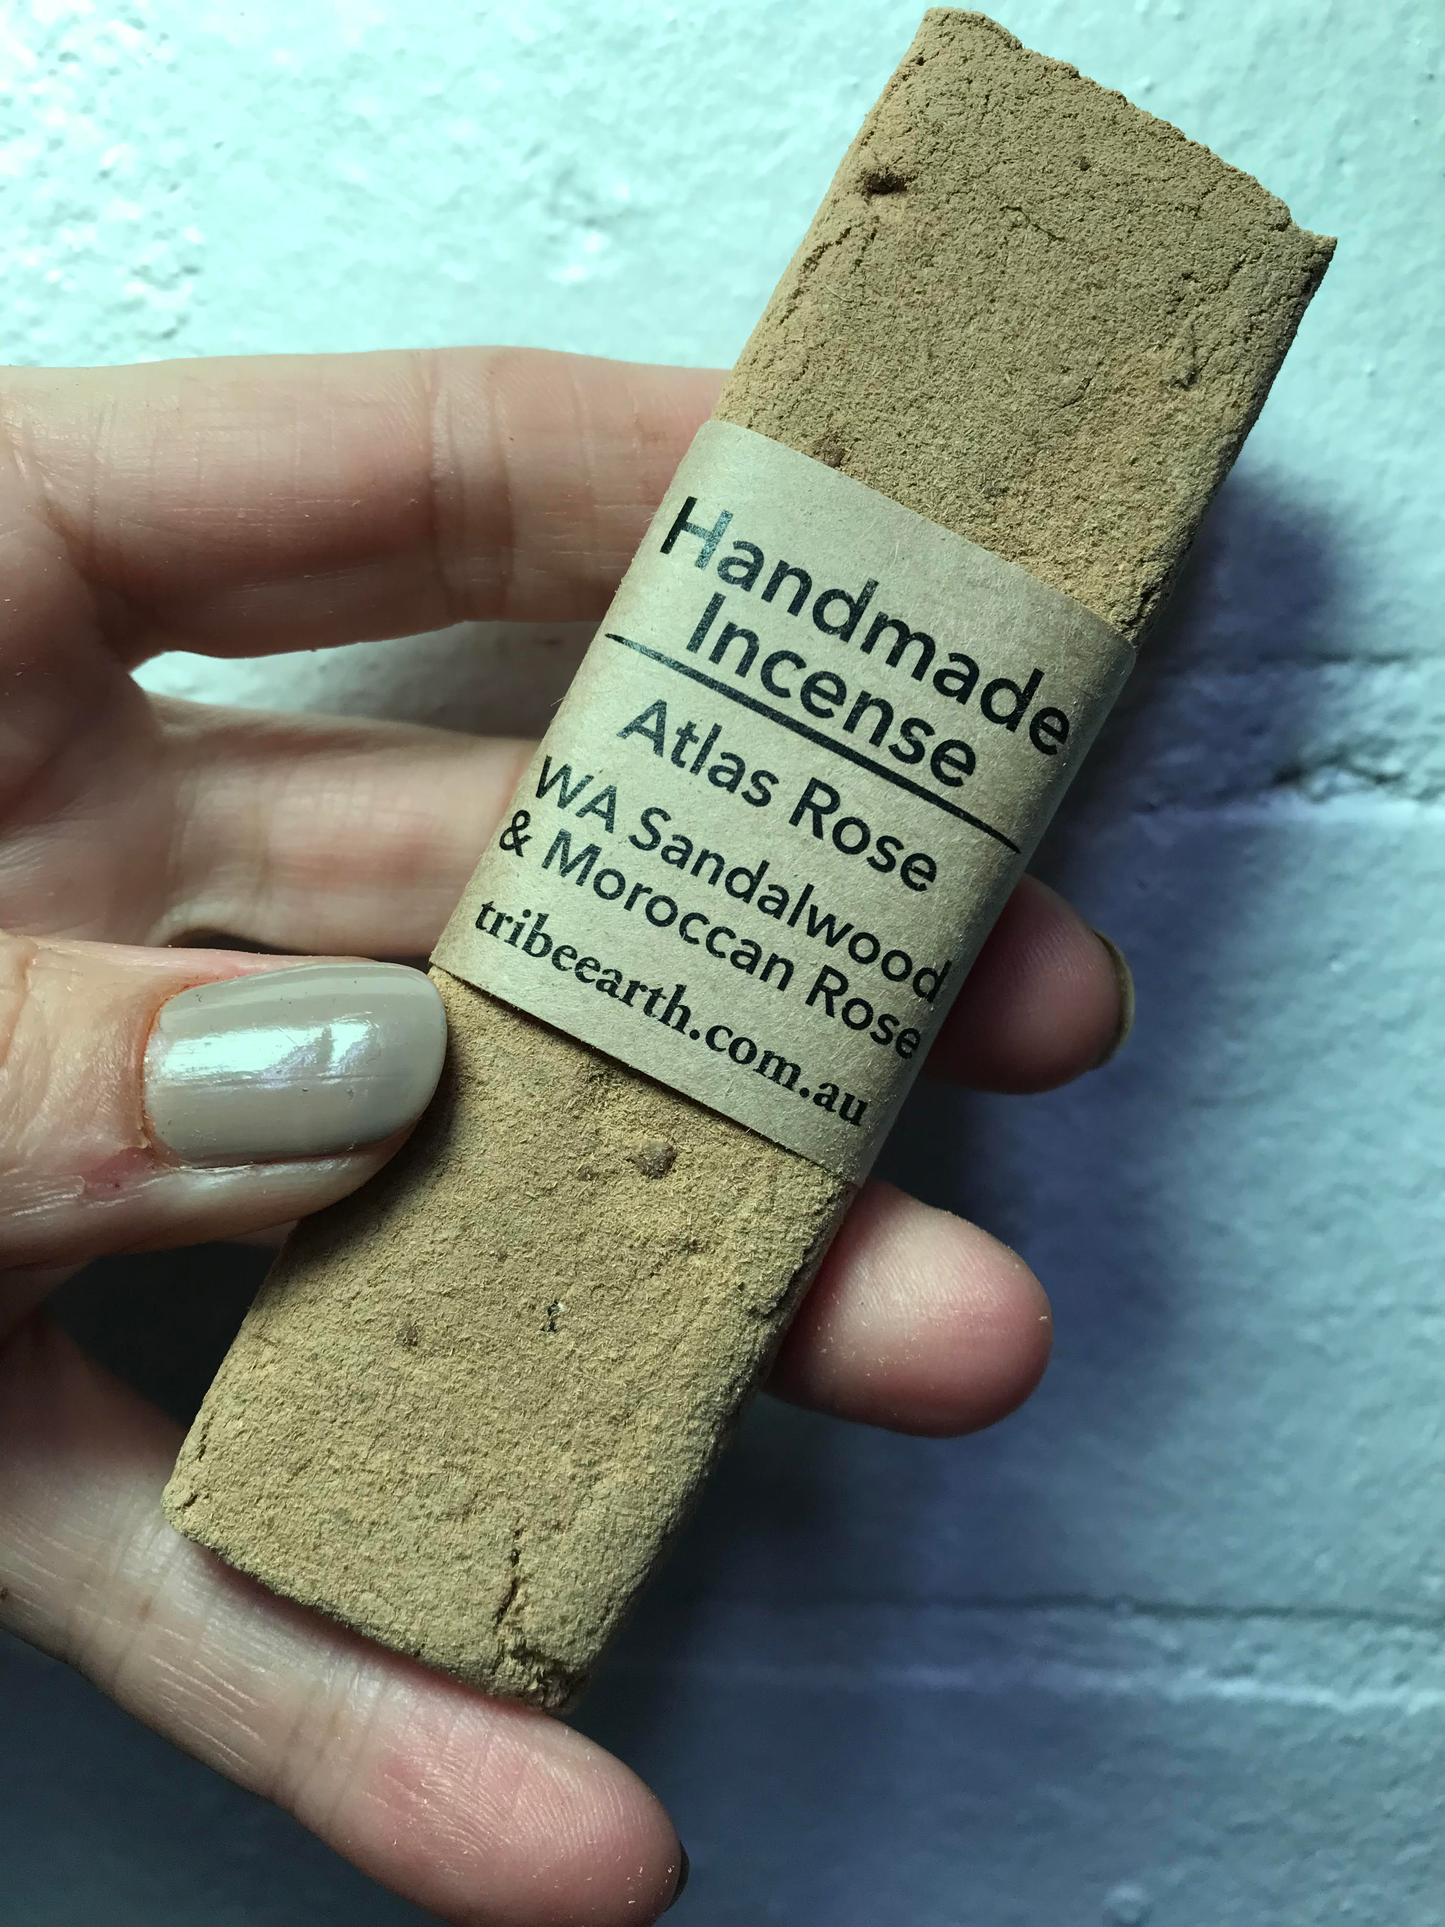 Handmade
Incense
Atlas Rose
WA Sandalwood
& Moroccan Rose
tribeearth.com.au